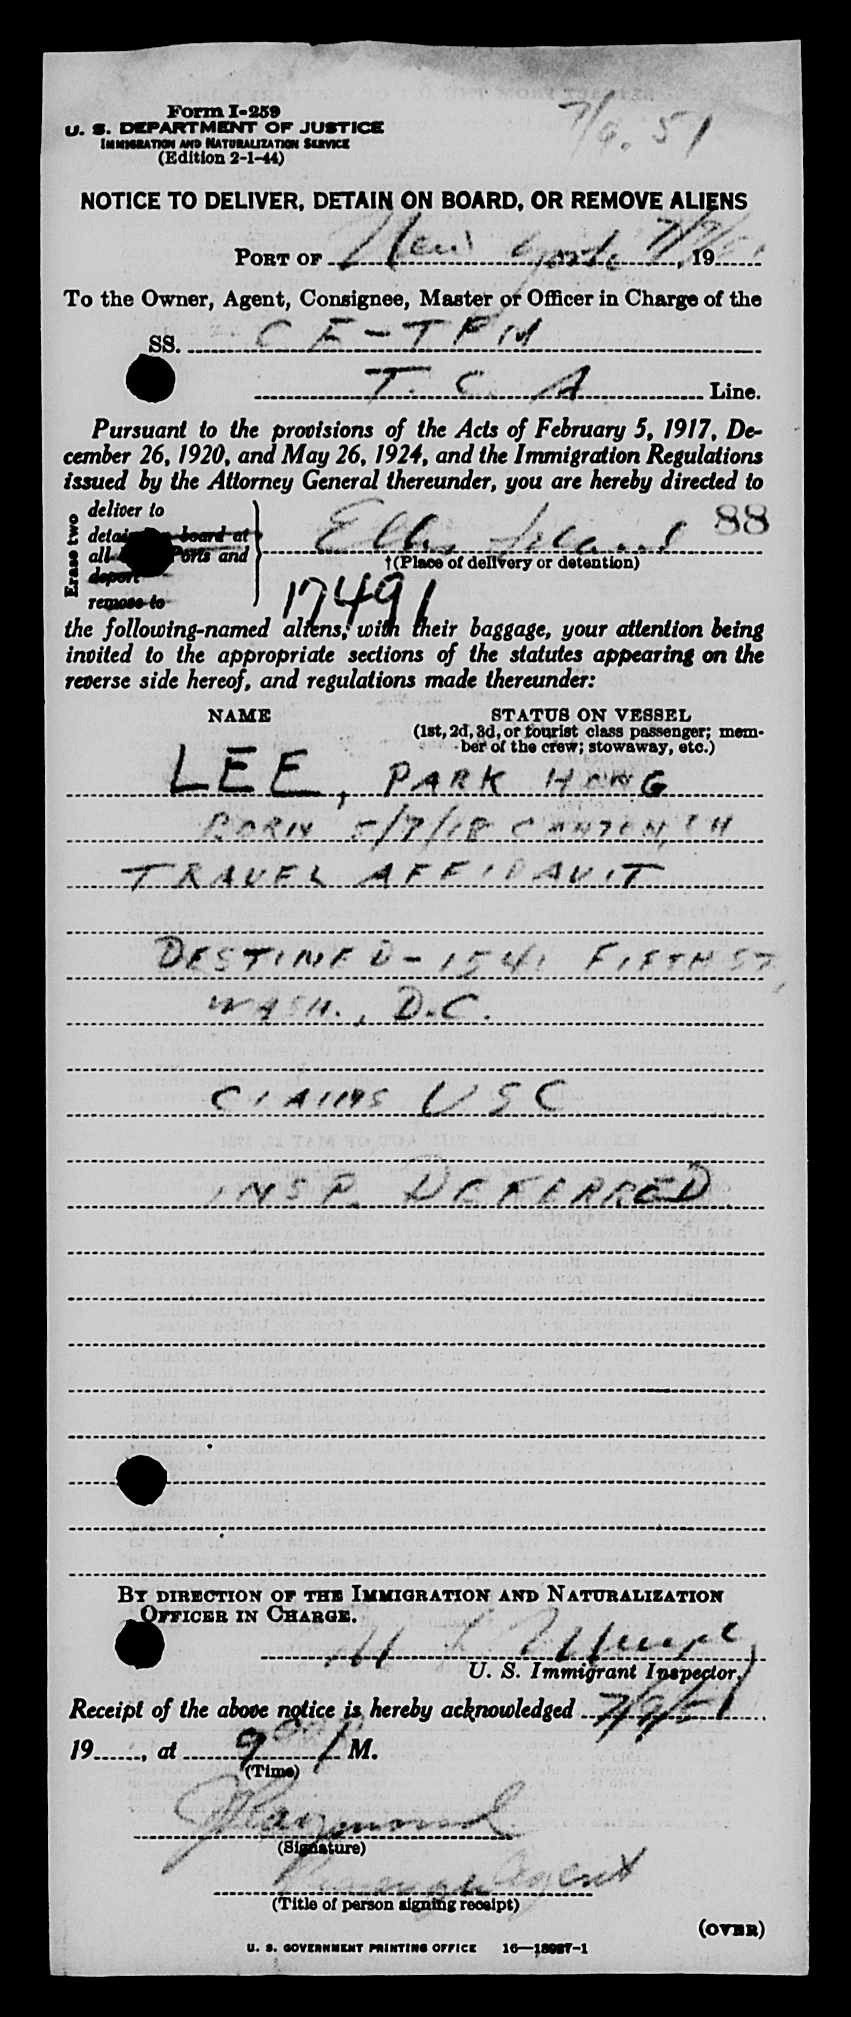 Form I-259
U. S. DEPARTMENT OF JUSTICE
IMMIGRATION AND NATURALIZATION SERVICE
(Edition 2-1-44)
7/9. 51
NOTICE TO DELIVER, DETAIN ON BOARD, OR REMOVE ALIENS
PORT OF New York 7/9/51, 19
To the Owner, Agent, Consignee, Master or Officer in Charge of the
SS. CF-TFM
T. C. A Line.
Pursuant to the provisions of the Acts of February 5, 1917, De-
cember 26, 1920, and May 26, 1924, and the Immigration Regulations
issued by the Attorney General thereunder, you are hereby directed to
Erase two
deliver to
board at
all Ports and
deport
remove to
Ellis Island 88
†(Place of delivery or detention)
17491
the following-named aliens, with their baggage, your attention being
invited to the appropriate sections of the statutes appearing on the
reverse side hereof, and regulations made thereunder:
NAME STATUS ON VESSEL
(1st, 2d, 3d, or tourist class passenger; mem-
ber of the crew; stowaway, etc.)
LEE, PARK HONG
BORN 5/7/18 CANTON, CH
TRAVEL AFFIDAVIT
DESTINED - 1541 FIFTH ST,
WASH., D.C.
CLAIMS USC
INSP. DEFERRED
BY DIRECTION OF THE IMMIGRATION AND NATURALIZATION
OFFICER IN CHARGE.
U. S. Immigrant Inspector.
Receipt of the above notice is hereby acknowledged 7/9/51
19, at 9 00 P M.
(Time)
Raymond
(Signature)
Agent
(Title of person signing receipt)
(OVER)
U. S. GOVERNMENT PRINTING OFFICE 16—18987-1